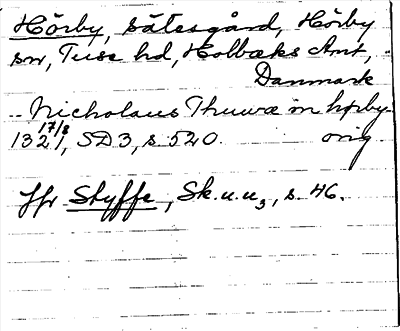 Hörby, sätesgård, Hörby
sn, Tuse hd, Holbæks Amt,
Danmark
.. Nicholaus Thuuæ in hørby..
17/8
1321, SD 3, s 520. orig
Jfr Styffe, Sk.u.u3, s. 46.